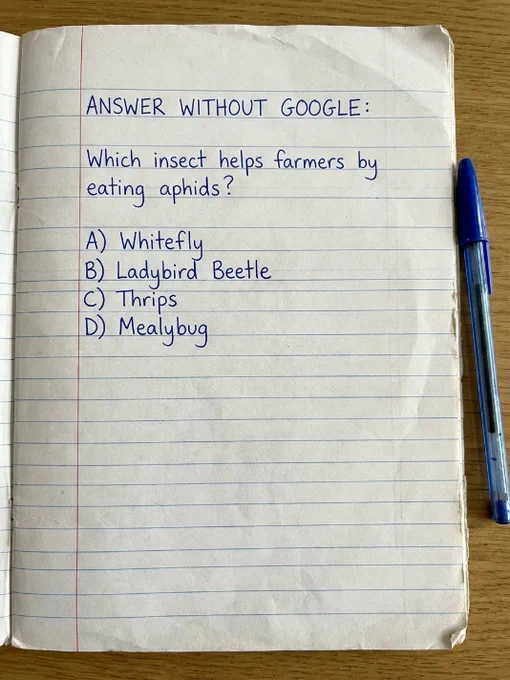 ANSWER WITHOUT GOOGLE:
Which insect helps farmers by
eating aphids?
A) Whitefly
B) Ladybird Beetle
C) Thrips
D) Mealybug